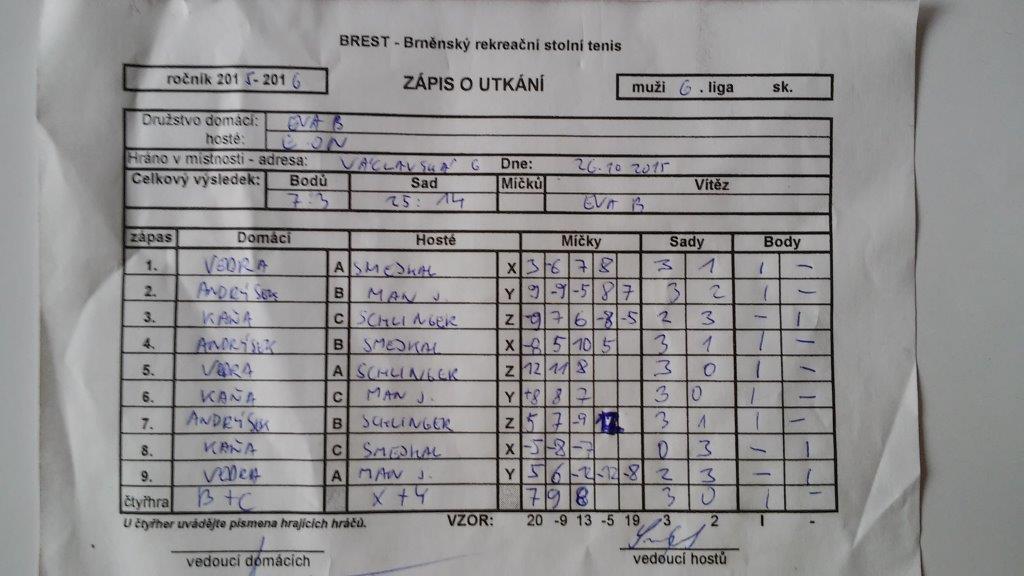 BREST - Brněnský rekreační stolní tenis
ročník 2015-2016 ZÁPIS O UTKÁNÍ muži 6. liga sk.
Družstvo domácí: EVA B
hosté: E ON
Hráno v místnosti - adresa: VÁCLAVSKÁ 6 Dne: 26.10 2015
Celkový výsledek: Bodů Sad Míčků Vítěz
7:3 25:14 EVA B
zápas Domácí Hosté Míčky Sady Body
1. VEDRA A SMEJKAL X 3 -6 7 8 3 1 1 -
2. ANDRÝSEK B MAN J. Y 9 -9 -5 8 7 3 2 1 -
3. KAŇA C SCHLINGER Z -9 7 6 -8 -5 2 3 - 1
4. ANDRÝSEK B SMEJKAL X -8 5 10 5 3 1 1 -
5. VEDRA A SCHLINGER Z 12 11 8 3 0 1 -
6. KAŇA C MAN J. Y 8 8 7 3 0 1 -
7. ANDRÝSEK B SCHLINGER Z 5 7 -9 3 1 1 -
8. KAŇA C SMEJKAL X -5 -8 -7 0 3 - 1
9. VEDRA A MAN J. Y 5 6 -12 -12 -8 2 3 - 1
čtyřhra B+C X+Y 7 9 8 3 0 1 -
U čtyřher uvádějte písmena hrajících hráčů. VZOR: 20 -9 13 -5 19 3 2 I -
vedoucí domácích vedoucí hostů